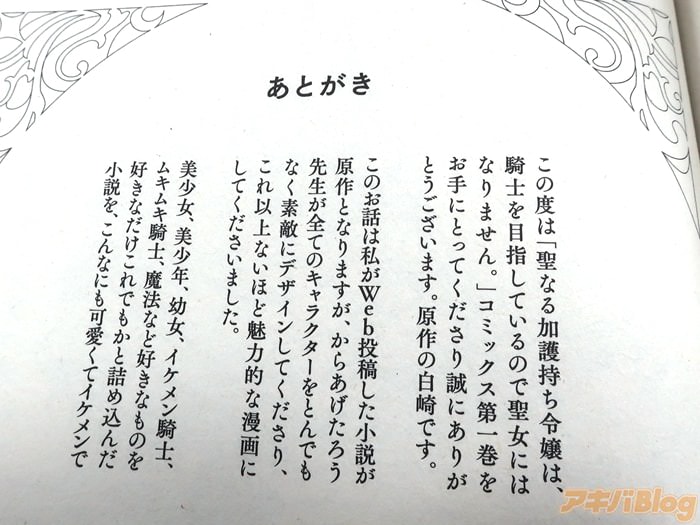 あとがき
この度は「聖なる加護持ち令嬢は、
騎士を目指しているので聖女には
なりません。」コミックス第一巻を
お手にとってくださり誠にありが
とうございます。原作の白崎です。
このお話は私がWeb投稿した小説が
原作となりますが、からあげたろう
先生が全てのキャラクターをとんでも
なく素敵にデザインしてくださり、
これ以上ないほど魅力的な漫画に
してくださいました。
美少女、美少年、幼女、イケメン騎士、
ムキムキ騎士、魔法など好きなものを
好きなだけこれでもかと詰め込んだ
小説を、こんなにも可愛くてイケメンで
アキバBlog